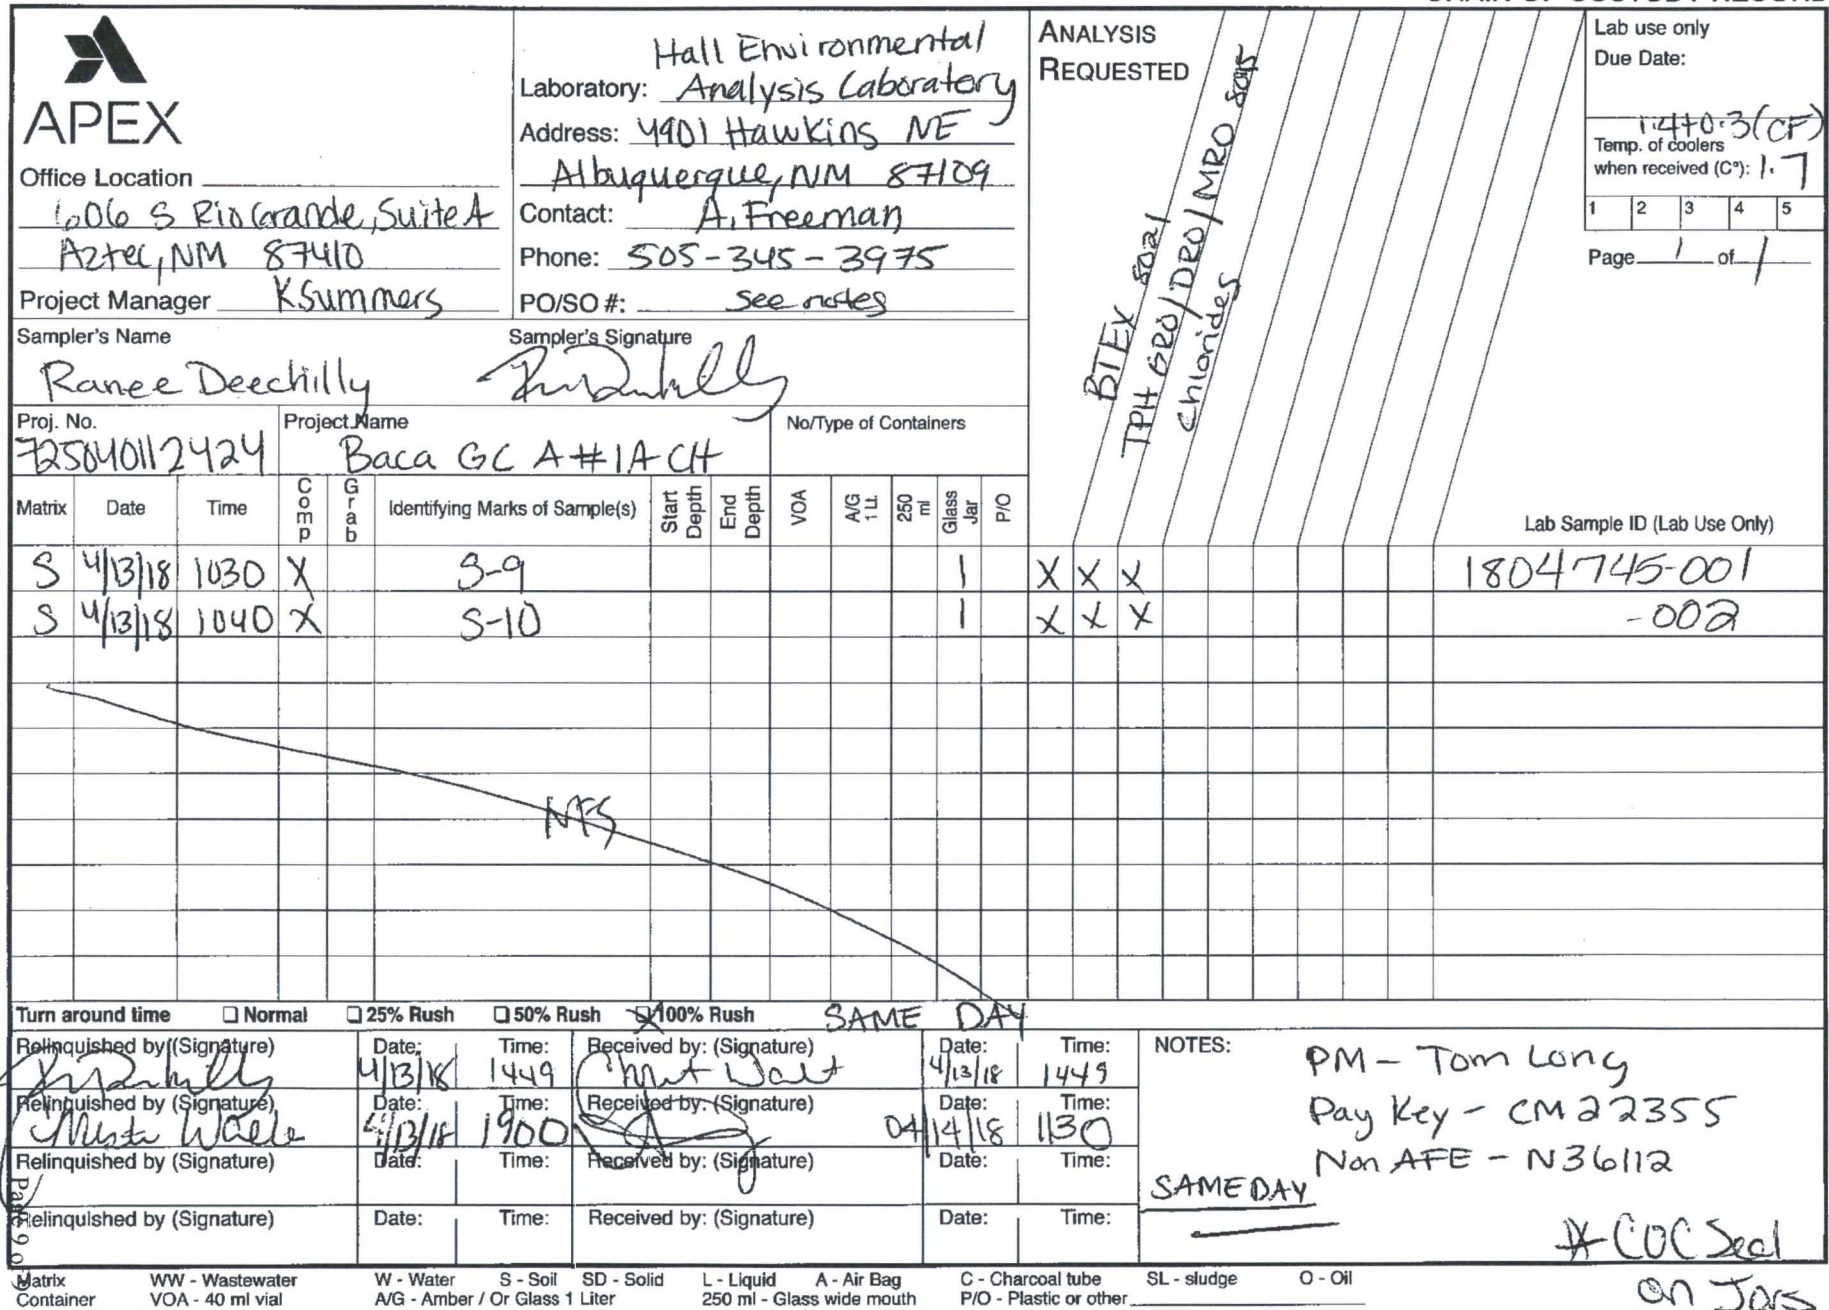 CHAIN OF CUSTODY RECORD
APEX
Office Location
606 S Rio Grande, Suite A
Aztec, NM 87410
Project Manager K Summers
Hall Environmental
Laboratory: Analysis Laboratory
Address: 4901 Hawkins NE
Albuquerque, NM 87109
Contact: A. Freeman
Phone: 505-345-3975
PO/SO #: see notes
ANALYSIS
REQUESTED
BTEX 8021
TPH GRO/DRO/MRO 8015
Chlorides
Lab use only
Due Date:
1.4+0.3(CF)
Temp. of coolers
when received (C°): 1.7
1 2 3 4 5
Page 1 of 1
Sampler's Name
Ranee Deechilly
Sampler's Signature
Proj. No.
725040112424
Project Name
Baca GC A #1A CH
No/Type of Containers
Matrix Date Time Comp Grab Identifying Marks of Sample(s) Start Depth End Depth VOA A/G 1 Lt. 250 ml Glass Jar P/O Lab Sample ID (Lab Use Only)
S 4/13/18 1030 X S-9 1 X X X 1804745-001
S 4/13/18 1040 X S-10 1 X X X -002
NFS
Turn around time Normal 25% Rush 50% Rush X 100% Rush SAME DAY
Relinquished by (Signature) Date: 4/13/18 Time: 1449 Received by: (Signature) Date: 4/13/18 Time: 1449
Relinquished by (Signature) Date: 4/13/18 Time: 1900 Received by: (Signature) Date: 04/14/18 Time: 1130
Relinquished by (Signature) Date: Time: Received by: (Signature) Date: Time:
Relinquished by (Signature) Date: Time: Received by: (Signature) Date: Time:
NOTES:
PM - Tom Long
Pay Key - CM22355
Non AFE - N36112
SAME DAY
* COC Seal
on Jars
Page 9 of
Matrix WW - Wastewater W - Water S - Soil SD - Solid L - Liquid A - Air Bag C - Charcoal tube SL - sludge O - Oil
Container VOA - 40 ml vial A/G - Amber / Or Glass 1 Liter 250 ml - Glass wide mouth P/O - Plastic or other